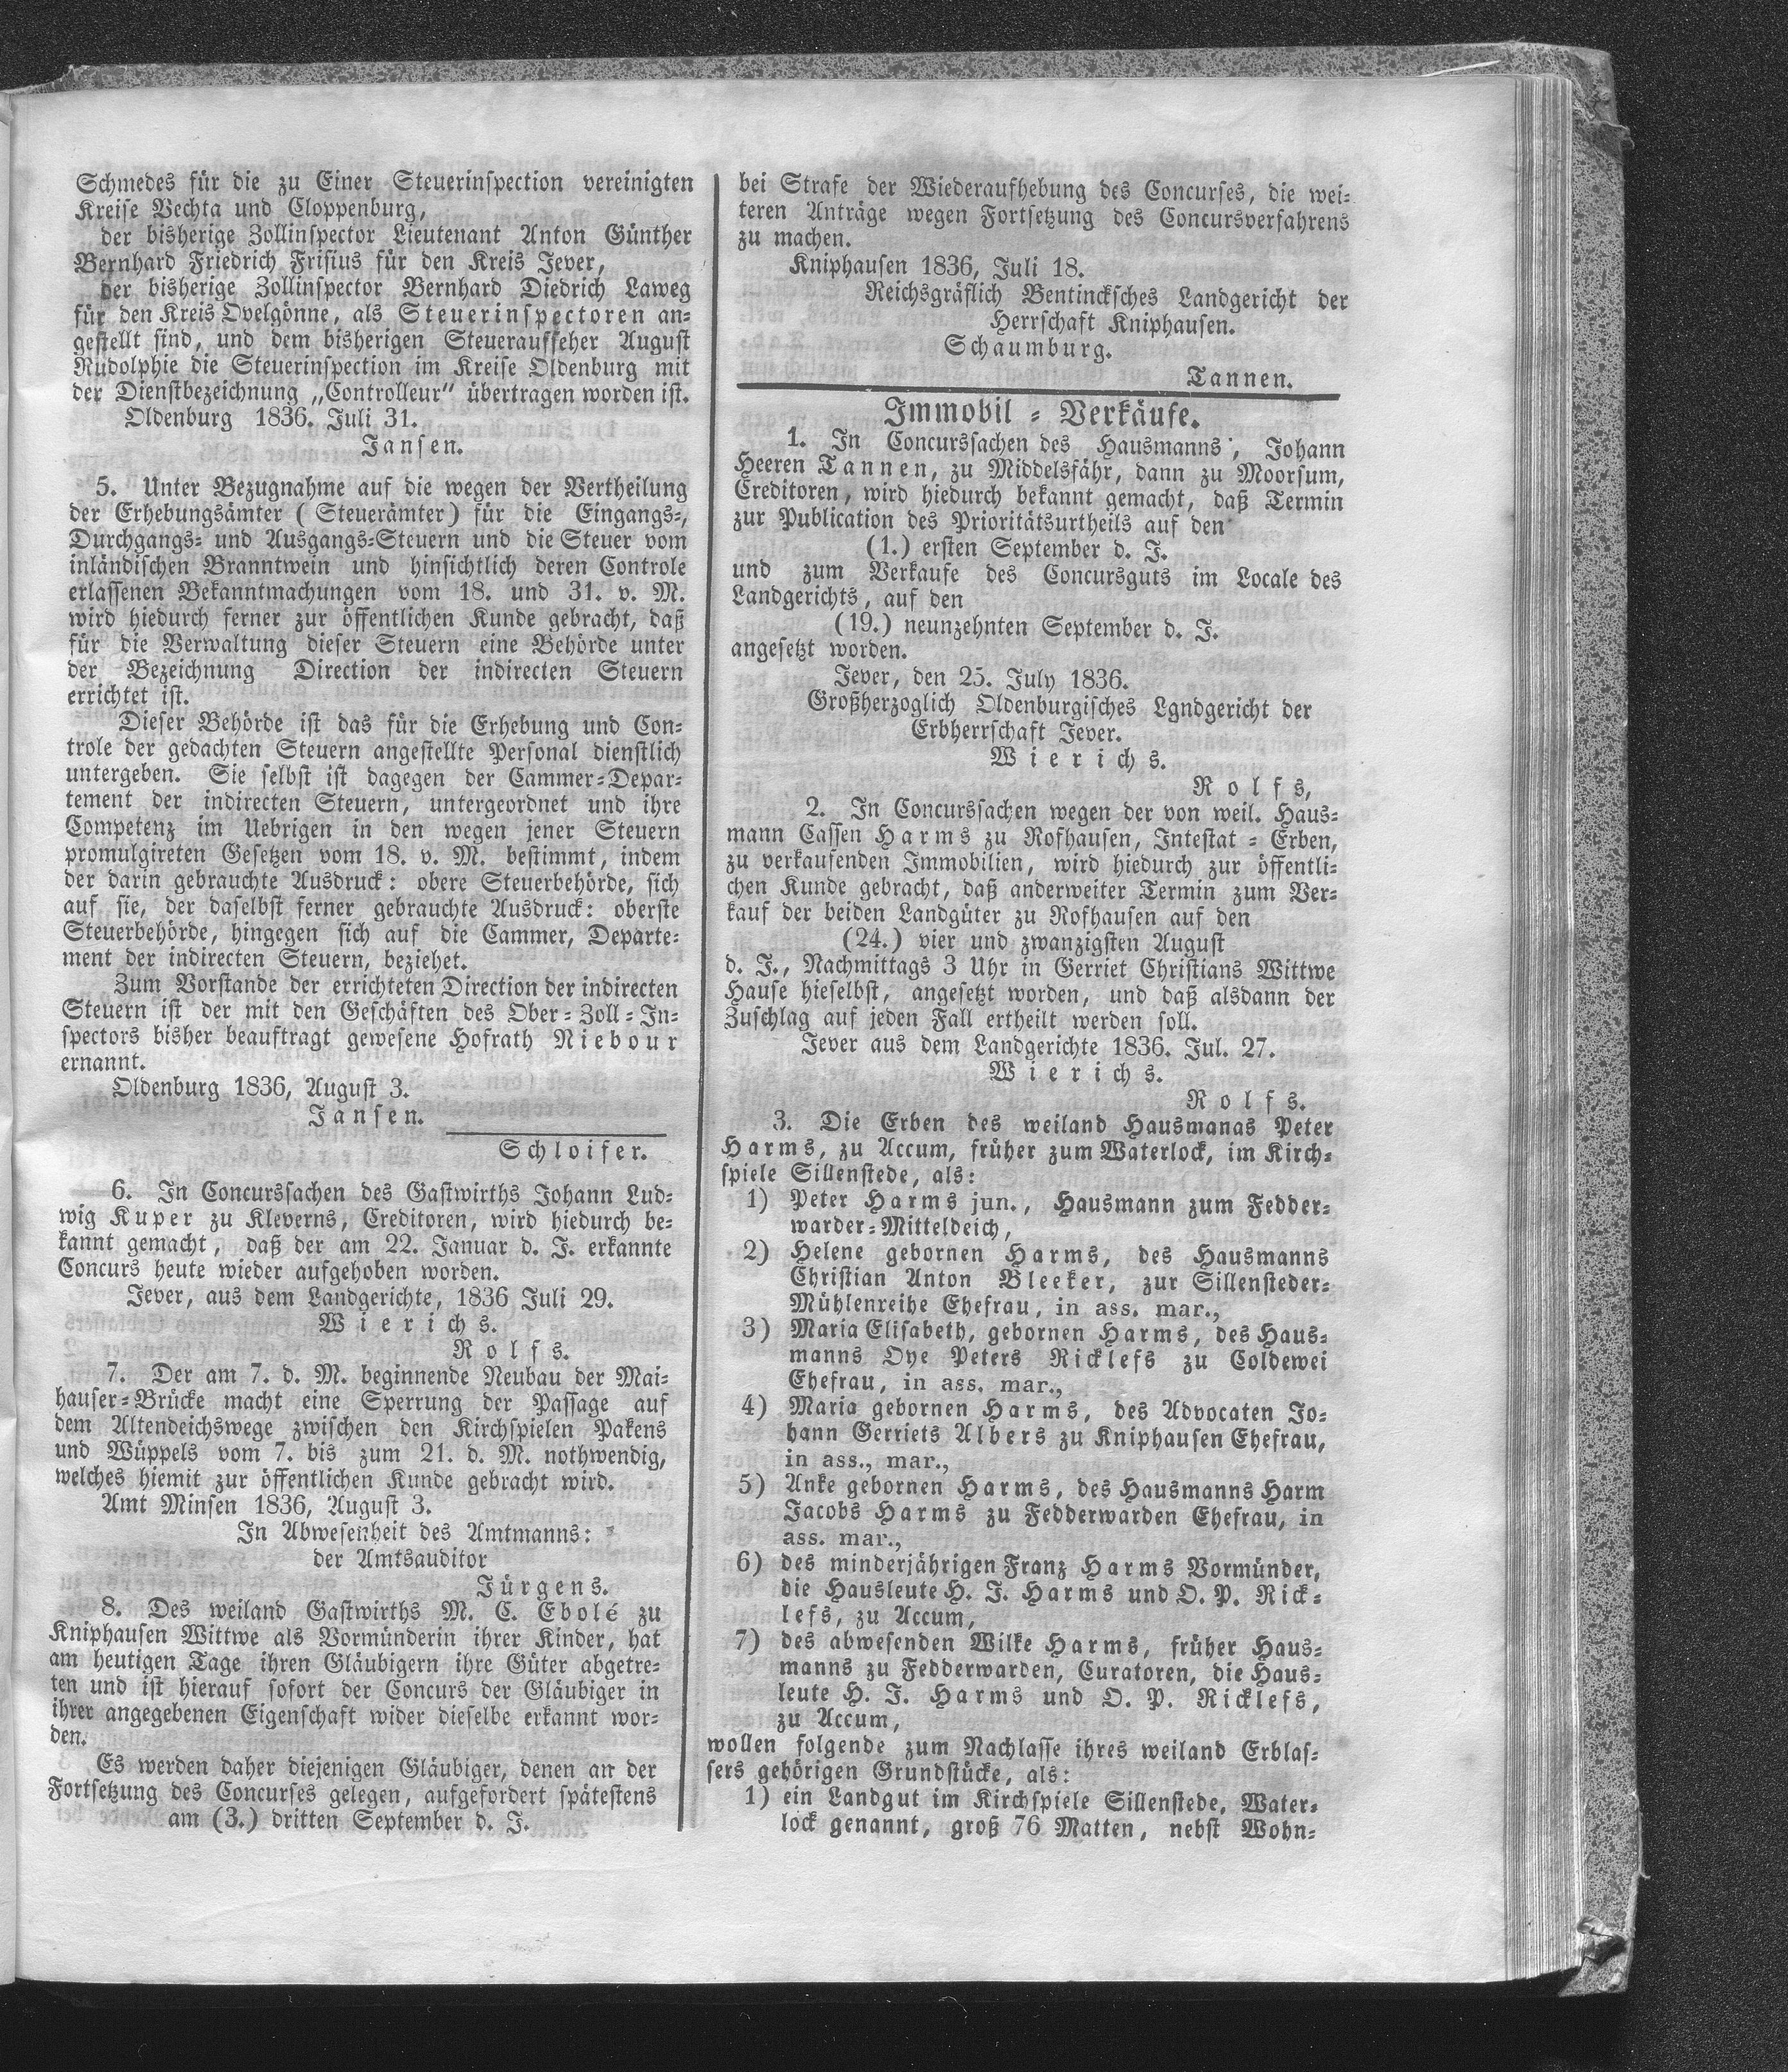 Schmedes für die zu Einer Steuerinspection vereinigten
Kreise Vechta und Cloppenburg,
der bisherige Zollinspector Lieutenant Anton Günther
Bernhard Friedrich Frisius für den Kreis Jever,
der bisherige Zollinspector Bernhard Diedrich Laweg
für den Kreis Ovelgönne, als Steuerinspectoren an-
gestellt sind, und dem bisherigen Steueraufseher August
Rudolphie die Steuerinspection im Kreise Oldenburg mit
der Dienstbezeichnung „Controlleur“ übertragen worden ist.
Oldenburg 1836. Juli 31.
Jansen.
5. Unter Bezugnahme auf die wegen der Vertheilung
der Erhebungsämter ( Steuerämter) für die Eingangs-,
Durchgangs- und Ausgangs-Steuern und die Steuer vom
inländischen Branntwein und hinsichtlich deren Controle
erlassenen Bekanntmachungen vom 18. und 31. v. M.
wird hiedurch ferner zur öffentlichen Kunde gebracht, daß
für die Verwaltung dieser Steuern eine Behörde unter
der Bezeichnung Direction der indirecten Steuern
errichtet ist.
Dieser Behörde ist das für die Erhebung und Con-
trole der gedachten Steuern angestellte Personal dienstlich
untergeben. Sie selbst ist dagegen der Cammer-Depar-
tement der indirecten Steuern, untergeordnet und ihre
Competenz im Uebrigen in den wegen jener Steuern
promulgireten Gesetzen vom 18. v. M. bestimmt, indem
der darin gebrauchte Ausdruck: obere Steuerbehörde, sich
auf sie, der daselbst ferner gebrauchte Ausdruck: oberste
Steuerbehörde, hingegen sich auf die Cammer, Departe-
ment der indirecten Steuern, beziehet.
Zum Vorstande der errichteten Direction der indirecten
Steuern ist der mit den Geschäften des Ober-Zoll-In-
spectors bisher beauftragt gewesene Hofrath Niebour
ernannt.
Oldenburg 1836, August 3.
Jansen.
Schloifer.
6. In Concurssachen des Gastwirths Johann Lud-
wig Kuper zu Kleverns, Creditoren, wird hiedurch be-
kannt gemacht, daß der am 22. Januar d. J. erkannte
Concurs heute wieder aufgehoben worden.
Jever, aus dem Landgerichte, 1836 Juli 29.
Wierichs.
Rolfs.
7. Der am 7. d. M. beginnende Neubau der Mai-
hauser-Brücke macht eine Sperrung der Passage auf
dem Altendeichswege zwischen den Kirchspielen Pakens
und Wüppels vom 7. bis zum 21. d. M. nothwendig,
welches hiemit zur öffentlichen Kunde gebracht wird.
Amt Minsen 1836, August 3.
In Abwesenheit des Amtmanns:
der Amtsauditor
Jürgens.
8. Des weiland Gastwirths M. C. Ebolé zu
Kniphausen Wittwe als Vormünderin ihrer Kinder, hat
am heutigen Tage ihren Gläubigern ihre Güter abgetre-
ten und ist hierauf sofort der Concurs der Gläubiger in
ihrer angegebenen Eigenschaft wider dieselbe erkannt wor-
den.
Es werden daher diejenigen Gläubiger, denen an der
Fortsetzung des Concurses gelegen, aufgefordert spätestens
am (3.) dritten September d. J.
bei Strafe der Wiederaufhebung des Concurses, die wei-
teren Anträge wegen Fortsetzung des Concursverfahrens
zu machen.
Kniphausen 1836, Juli 18.
Reichsgräflich Bentincksches Landgericht der
Herrschaft Kniphausen.
Schaumburg.
Tannen.
Immobil-Verkäufe.
1. In Concurssachen des Hausmanns, Johann
Heeren Tannen, zu Middelsfähr, dann zu Moorsum,
Creditoren, wird hiedurch bekannt gemacht, daß Termin
zur Publication des Prioritätsurtheils auf den
(1.) ersten September d. J.
und zum Verkaufe des Concursguts im Locale des
Landgerichts, auf den
(19.) neunzehnten September d. J.
angesetzt worden.
Jever, den 25. July 1836.
Großherzoglich Oldenburgisches Lgndgericht der
Erbherrschaft Jever.
Wierichs.
Rolfs,
2. In Concurssachen wegen der von weil. Haus-
mann Cassen Harms zu Rofhausen, Intestat-Erben,
zu verkaufenden Immobilien, wird hiedurch zur öffentli-
chen Kunde gebracht, daß anderweiter Termin zum Ver-
kauf der beiden Landgüter zu Rofhausen auf den
(24.) vier und zwanzigsten August
d. J., Nachmittags 3 Uhr in Gerriet Christians Wittwe
Hause hieselbst, angesetzt worden, und daß alsdann der
Zuschlag auf jeden Fall ertheilt werden soll.
Jever aus dem Landgerichte 1836. Jul. 27.
Wierichs.
Rolfs.
3. Die Erben des weiland Hausmanas Peter
Harms, zu Accum, früher zum Waterlock, im Kirch-
spiele Sillenstede, als:
1) Peter Harms jun., Hausmann zum Fedder-
warder-Mitteldeich,
2) Helene gebornen Harms, des Hausmanns
Christian Anton Bleeker, zur Sillensteder-
Mühlenreihe Ehefrau, in ass. mar.,
3) Maria Elisabeth, gebornen Harms, des Haus-
manns Oye Peters Ricklefs zu Coldewei
Ehefrau, in ass. mar.,
4) Maria gebornen Harms, des Advocaten Jo-
hann Gerriets Albers zu Kniphausen Ehefrau,
in ass., mar.,
5) Anke gebornen Harms, des Hausmanns Harm
Jacobs Harms zu Fedderwarden Ehefrau, in
ass. mar.,
6) des minderjährigen Franz Harms Vormünder,
die Hausleute H. J. Harms und O. P. Rick-
lefs, zu Accum,
7) des abwesenden Wilke Harms, früher Haus-
manns zu Fedderwarden, Curatoren, die Haus-
leute H. J. Harms und O. P. Ricklefs,
zu Accum,
wollen folgende zum Nachlasse ihres weiland Erblas-
sers gehörigen Grundstücke, als:
1) ein Landgut im Kirchspiele Sillenstede, Water-
lock genannt, groß 76 Matten, nebst Wohn-